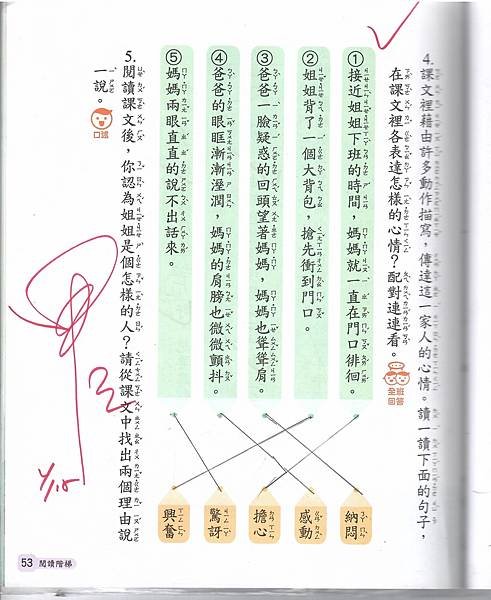 4. 課文裡藉由許多動作描寫，傳達這一家人的心情。讀一讀下面的句子，
在課文裡各表達怎樣的心情？配對連連看。
全班
回答
①接近姐姐下班的時間，媽媽就一直在門口徘徊。
②姐姐背了一個大背包，搶先衝到門口。
③爸爸一臉疑惑的回頭望著媽媽，媽媽也聳聳肩。
④爸爸的眼眶漸漸溼潤，媽媽的肩膀也微微顫抖。
⑤媽媽兩眼直直的說不出話來。
納悶
感動
擔心
驚訝
興奮
5. 閱讀課文後，你認為姐姐是個怎樣的人？請從課文中找出兩個理由說
一說。
口述
4/15
53 閱讀階梯